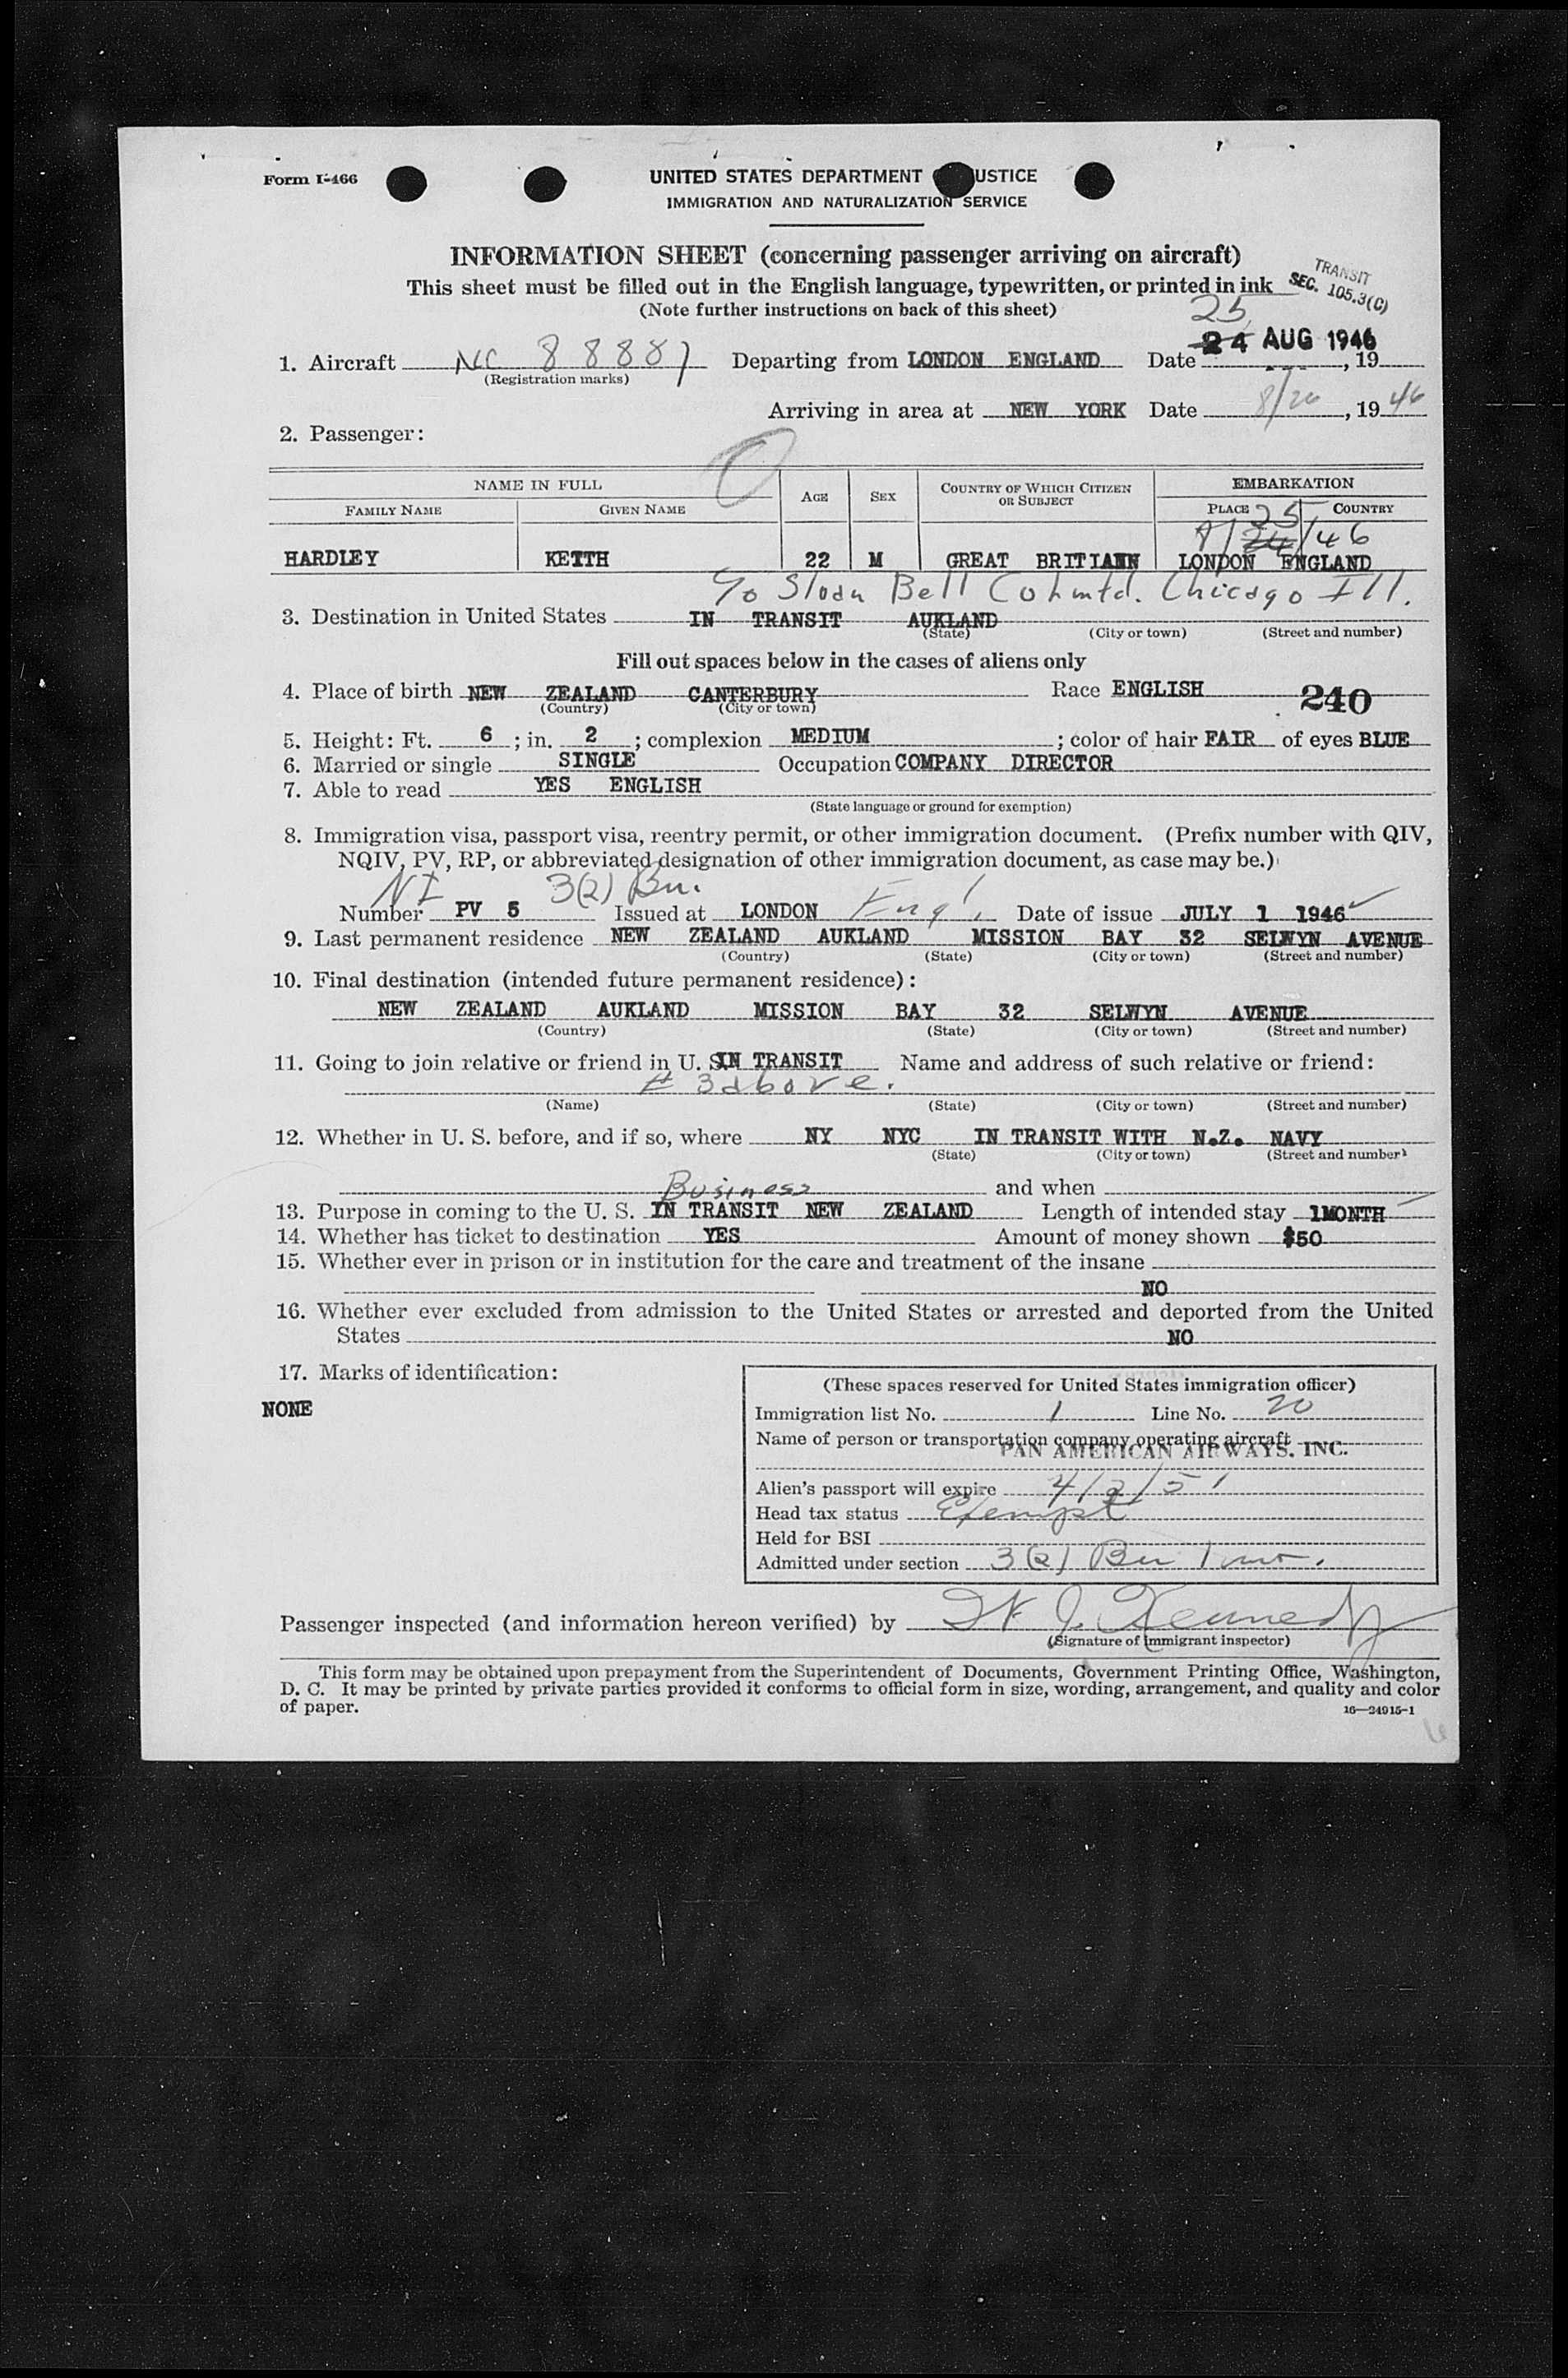 Form I-466
UNITED STATES DEPARTMENT USTICE
IMMIGRATION AND NATURALIZATION SERVICE
INFORMATION SHEET (concerning passenger arriving on aircraft)
This sheet must be filled out in the English language, typewritten, or printed in ink
TRANSIT
SEC. 105.3(C)
(Note further instructions on back of this sheet)
25
1. Aircraft NC 88887 Departing from LONDON ENGLAND Date 24 AUG 1946, 19
(Registration marks)
Arriving in area at NEW YORK Date 8/26, 1946
2. Passenger:
NAME IN FULL AGE SEX COUNTRY OF WHICH CITIZEN OR SUBJECT EMBARKATION
FAMILY NAME GIVEN NAME PLACE COUNTRY
25
24/46
HARDLEY KEITH 22 M GREAT BRITIANN LONDON ENGLAND
c/o Sloan Bell Chicago Ill.
3. Destination in United States IN TRANSIT AUKLAND
(State) (City or town) (Street and number)
Fill out spaces below in the cases of aliens only
4. Place of birth NEW ZEALAND CANTERBURY Race ENGLISH 240
(Country) (City or town)
5. Height: Ft. 6; in. 2; complexion MEDIUM; color of hair FAIR of eyes BLUE
6. Married or single SINGLE Occupation COMPANY DIRECTOR
7. Able to read YES ENGLISH
(State language or ground for exemption)
8. Immigration visa, passport visa, reentry permit, or other immigration document. (Prefix number with QIV,
NQIV, PV, RP, or abbreviated designation of other immigration document, as case may be.)
NI 3(2) Bu.
Number PV 5 Issued at LONDON Eng. Date of issue JULY 1 1946
9. Last permanent residence NEW ZEALAND AUKLAND MISSION BAY 32 SELWYN AVENUE
(Country) (State) (City or town) (Street and number)
10. Final destination (intended future permanent residence):
NEW ZEALAND AUKLAND MISSION BAY 32 SELWYN AVENUE
(Country) (State) (City or town) (Street and number)
11. Going to join relative or friend in U. S. IN TRANSIT Name and address of such relative or friend:
# 3 above.
(Name) (State) (City or town) (Street and number)
12. Whether in U. S. before, and if so, where NY NYC IN TRANSIT WITH N.Z. NAVY
(State) (City or town) (Street and number)
Business and when
13. Purpose in coming to the U. S. IN TRANSIT NEW ZEALAND Length of intended stay 1MONTH
14. Whether has ticket to destination YES Amount of money shown $50
15. Whether ever in prison or in institution for the care and treatment of the insane
NO
16. Whether ever excluded from admission to the United States or arrested and deported from the United
States NO
17. Marks of identification:
NONE
(These spaces reserved for United States immigration officer)
Immigration list No. 1 Line No. 20
Name of person or transportation company operating aircraft
PAN AMERICAN AIRWAYS. INC.
Alien's passport will expire 4/2/51
Head tax status Exempt
Held for BSI
Admitted under section 3(2) Bu 1 mo.
Passenger inspected (and information hereon verified) by J. Kennedy
(Signature of immigrant inspector)
This form may be obtained upon prepayment from the Superintendent of Documents, Government Printing Office, Washington,
D. C. It may be printed by private parties provided it conforms to official form in size, wording, arrangement, and quality and color
of paper.
16—24915-1